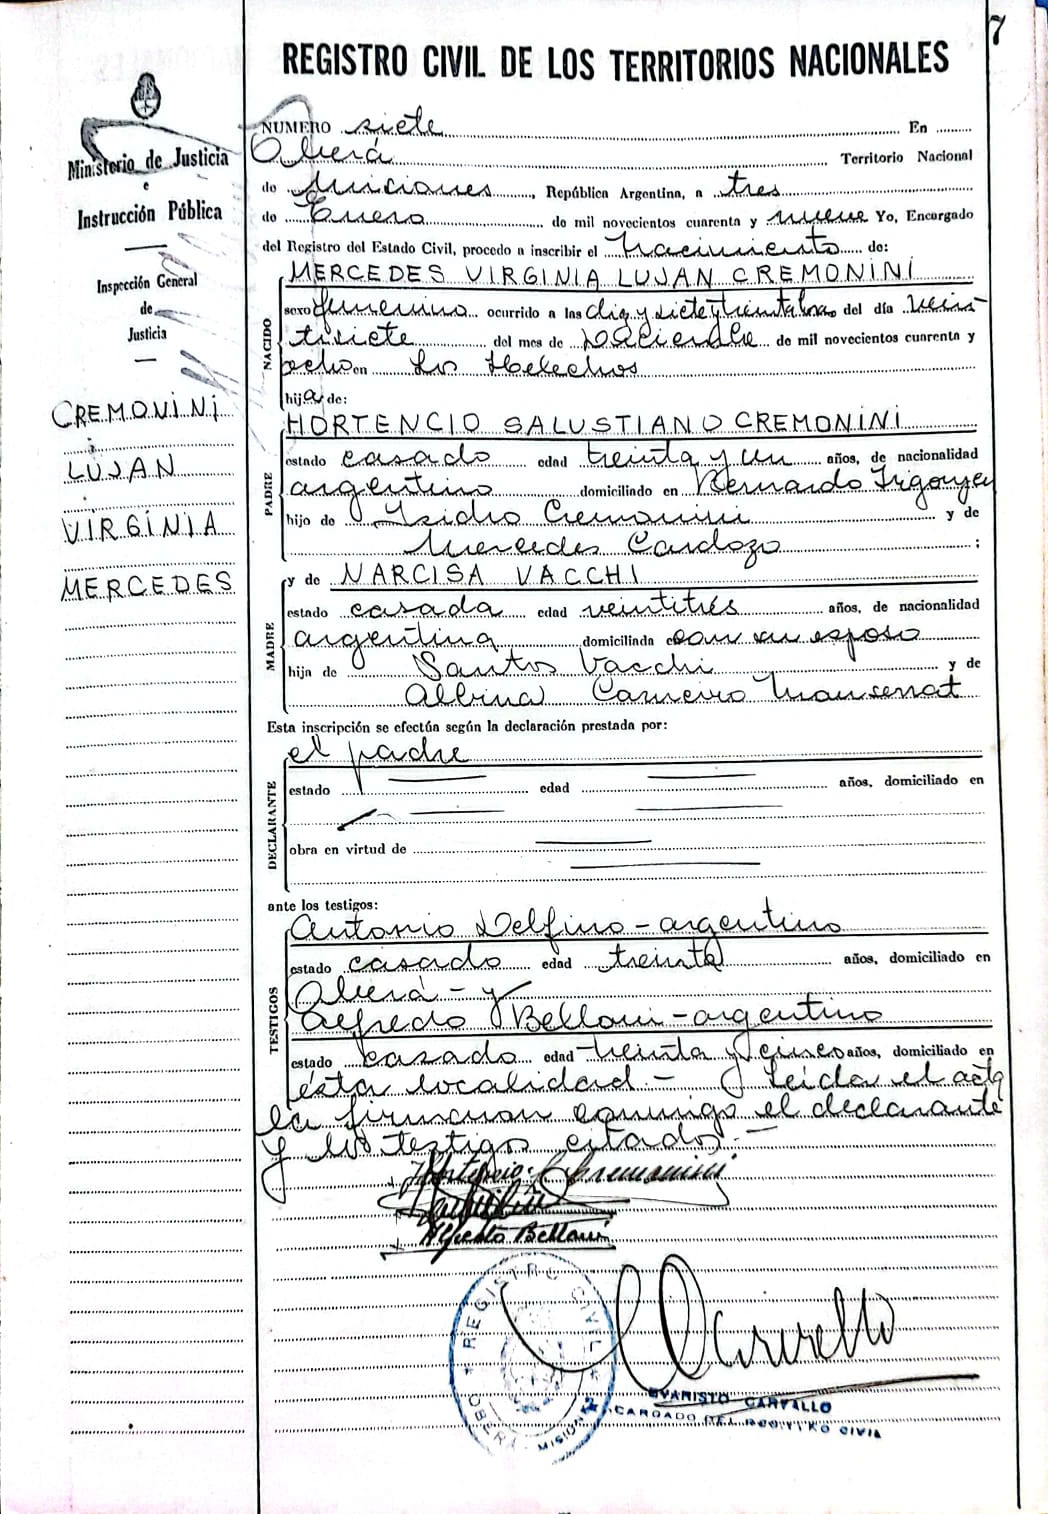 7
REGISTRO CIVIL DE LOS TERRITORIOS NACIONALES
Ministerio de Justicia
e
Instrucción Pública
Inspección General
de
Justicia
CREMONINI
LUJAN
VIRGINIA
MERCEDES
NUMERO siete En
Oberá Territorio Nacional
de Misiones, República Argentina, a tres
de Enero de mil novecientos cuarenta y nueve Yo, Encargado
del Registro del Estado Civil, procedo a inscribir el nacimiento de:
NACIDO
MERCEDES VIRGINIA LUJAN CREMONINI
sexo femenino ocurrido a las diez y siete y treinta hora del día vein
tisiete del mes de Diciembre de mil novecientos cuarenta y
ocho en Los Helechos
hija de:
PADRE
HORTENCIO SALUSTIANO CREMONINI
estado casado edad treinta y un años, de nacionalidad
argentino domiciliado en Bernardo Irigoyen
hijo de Isidro Cremonini y de
Mercedes Cardozo ;
MADRE
y de NARCISA VACCHI
estado casada edad veintitrés años, de nacionalidad
argentina domiciliada con su esposo
hija de Santos Vacchi y de
Albina Carneiro Monserrat
Esta inscripción se efectúa según la declaración prestada por:
DECLARANTE
el padre
estado edad años, domiciliado en
obra en virtud de
ante los testigos:
TESTIGOS
Antonio Delfino - argentino
estado casado edad treinta años, domiciliado en
Oberá - y
Alfredo Belloni - argentino
estado casado edad treinta y cinco años, domiciliado en
ésta localidad - Leída el acta
la firmaron conmigo el declarante
y los testigos citados. -
Hortencio S. Cremonini
Alfredo Belloni
REGISTRO CIVIL
OBERA - MISIONES
EVARISTO CARVALLO
ENCARGADO DEL REGISTRO CIVIL